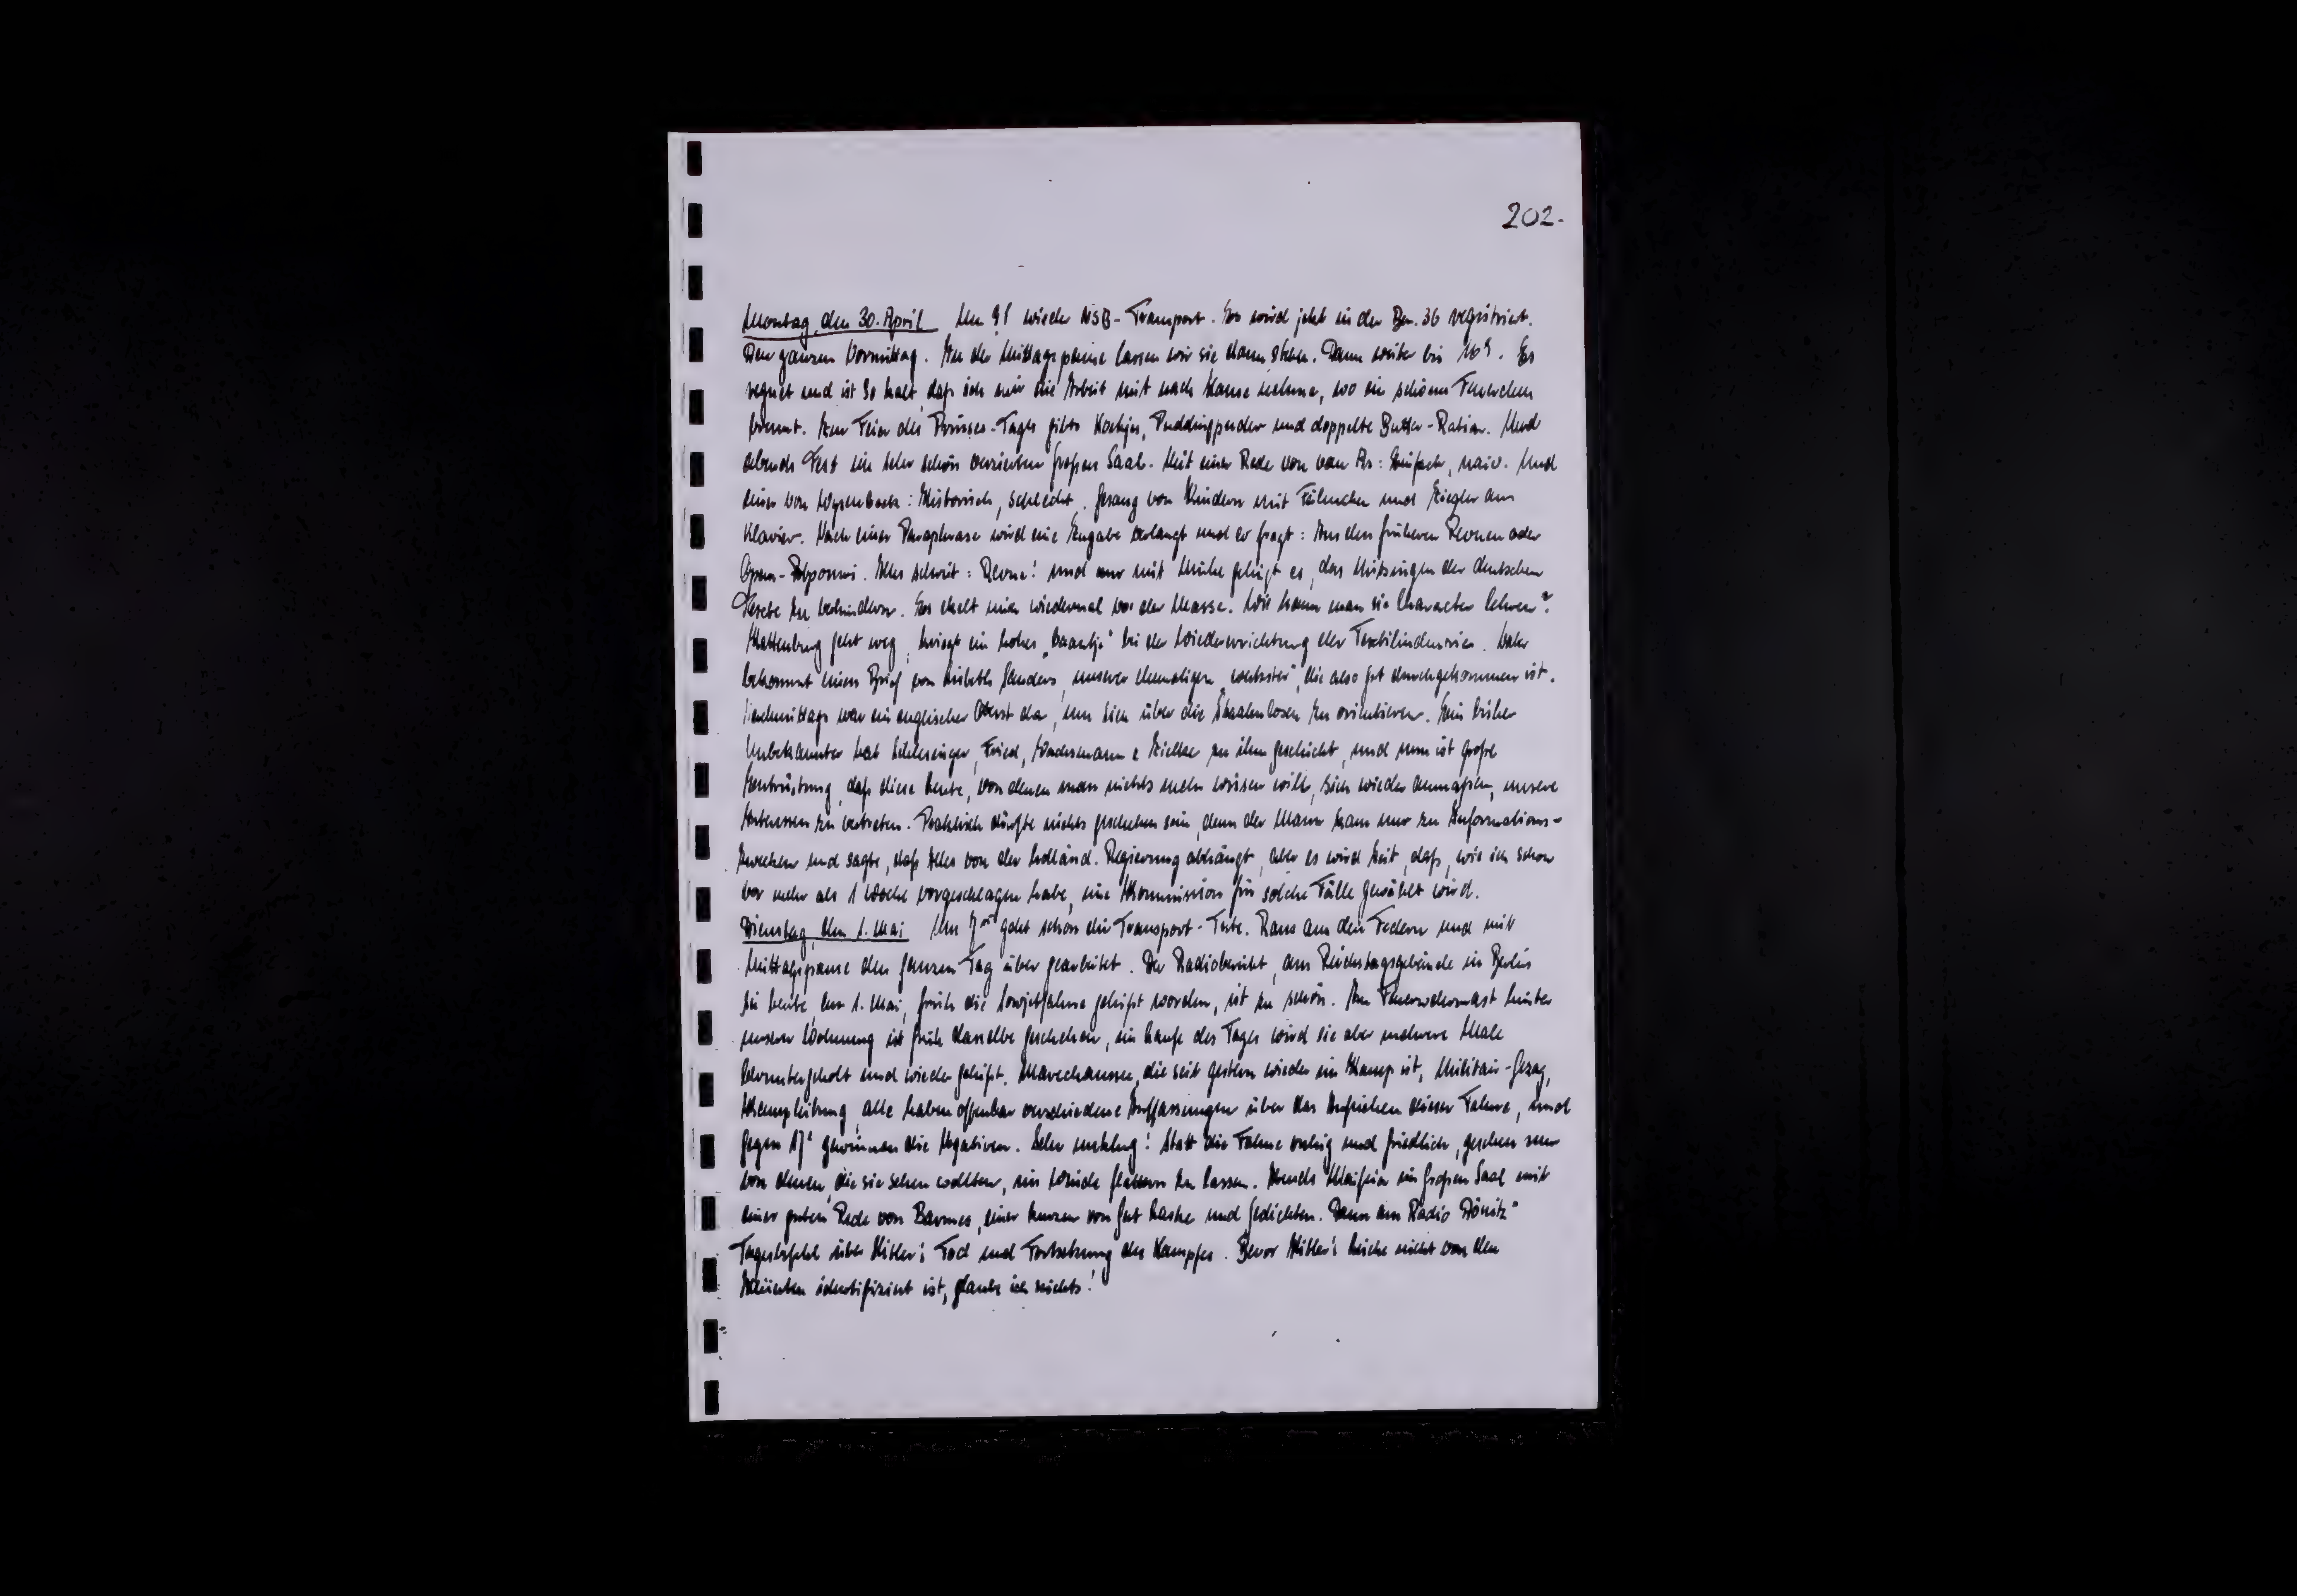 202.
Montag, den 30. April Um 9¹ wieder NSB-Transport. Es wird jetzt in der Bar. 36 registriert.
Den ganzen Vormittag. In der Mittagspause lassen wir sie dann stehn. Dann weiter bis 16⁵. Es
regnet und ist so kalt, daß ich mir die Arbeit mit nach Hause nehme, wo ein schönes Feuerchen
brennt. Zur Feier des Prinses-Tages gibts Koekjes, Puddingpuder und doppelte Butter-Ration. Und
abends Fest im sehr schön verzierten großen Saal. Mit einer Rede von van As: Einfach, naiv. Und
einer von : Historisch, schlecht. Gesang von Kindern mit Fähnchen und Ziegler am
Klavier. Nach einer Paraphrase wird eine Zugabe verlangt und er fragt: Aus den früheren Revuen oder
Opern-Potpourri. Alles schreit: Revue! und nur mit Mühe gelingt es, das Mitsingen der deutschen
Texte zu verhindern. Es ekelt mich wiedermal vor der Masse. Wie kann man sie Character lehren?
Kattenburg geht weg, kriegt ein hohes „baantje" bei der Wiedererrichtung der Textilindustrie.
bekommt einen Brief von Sanders, unserer ehemaligen , die also gut durchgekommen ist.
Nachmittags war ein englischer Oberst da, um sich über die Staatenlosen zu orientieren. Ein bisher
Unbekannter hat Schlesinger, Fried, Wachsmann & Zielke zu ihm geschickt, und nun ist große
Entrüstung, daß diese Leute, von denen man nichts mehr wissen will, sich wieder anmaßen, unsere
Interessen zu vertreten. Praktisch dürfte nichts geschehen sein, denn der Mann kam nur zu Informations-
zwecken und sagte, daß Alles von der holländ. Regierung abhängt, aber es wird Zeit, daß, wie ich schon
vor mehr als 1 Woche vorgeschlagen habe, eine Kommission für solche Fälle gewählt wird.
Dienstag, den 1. Mai Um 7 geht schon die Transport-Tute. Raus aus den Federn und mit
Mittagspause den ganzen Tag über gearbeitet. Der Radiobericht, am Reichstagsgebäude in Berlin
sei heute, am 1. Mai, früh die Sowjetfahne gehißt worden, ist zu schön. Am Feuerwehrmast hinter
unserer Wohnung ist früh dasselbe geschehen, im Laufe des Tages wird sie aber mehrere Male
heruntergeholt und wieder gehißt. Marechaussee, die seit gestern wieder im Kamp ist, Militair-Gezag,
Kampleitung, alle haben offenbar verschiedene Auffassungen über das Aufziehen dieser Fahne, und
gegen 17¹ gewinnen die Negativen. Sehr unklug! Statt die Fahne ruhig und friedlich, gesehen nur
von denen, die sie sehen wollten, im Winde flattern zu lassen. Abends Maifeier im großen Saal mit
einer guten Rede von Barmes, einer kurzen von Gert Laske und Gedichten. Dann am Radio Dönitz"
Tagesbefehl über Hitler's Tod und Fortsetzung des Kampfes. Bevor Hitler's Leiche nicht von den
Alliierten identifiziert ist, glaube ich nichts!